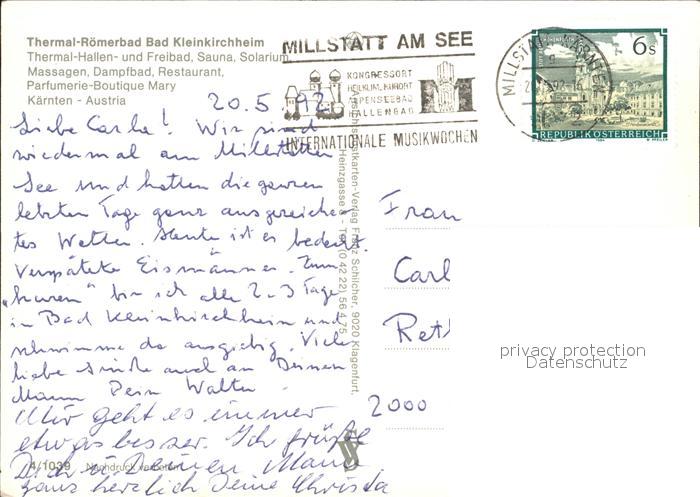 Thermal-Römerbad Bad Kleinkirchheim
Thermal-Hallen- und Freibad, Sauna, Solarium,
Massagen, Dampfbad, Restaurant,
Parfumerie-Boutique Mary
Kärnten - Austria
MILLSTATT AM SEE
KONGRESSORT
HEILKLIM. KURORT
ALPENSEEBAD
HALLENBAD
INTERNATIONALE MUSIKWOCHEN
MILLSTATT
6s
REPUBLIK ÖSTERREICH
20.5.92
Liebe Carla! Wir sind
wiedermal am Millstätter
See und hatten die ganzen
letzten Tage ganz ausgezeichne-
tes Wetter. Heute ist es bedeckt.
Verspätete Eismänner. Zum
"kuren" bin ich alle 2-3 Tage
in Bad Kleinkirchheim und
schwimme da ausgiebig. Viele
liebe Grüße auch an Deinen
Mann Dein Walter
Mir geht es immer
etwas besser. Ich grüße
Dich u Deinen Mann
ganz herzlich Deine Christa
4/1039 Nachdruck verboten
Ansichtskarten-Verlag Franz Schilcher, 9020 Klagenfurt,
Heinzgasse - Tel. (0 42 22) 56 4 75
Frau
Carl
Reth
2000
privacy protection
Datenschutz